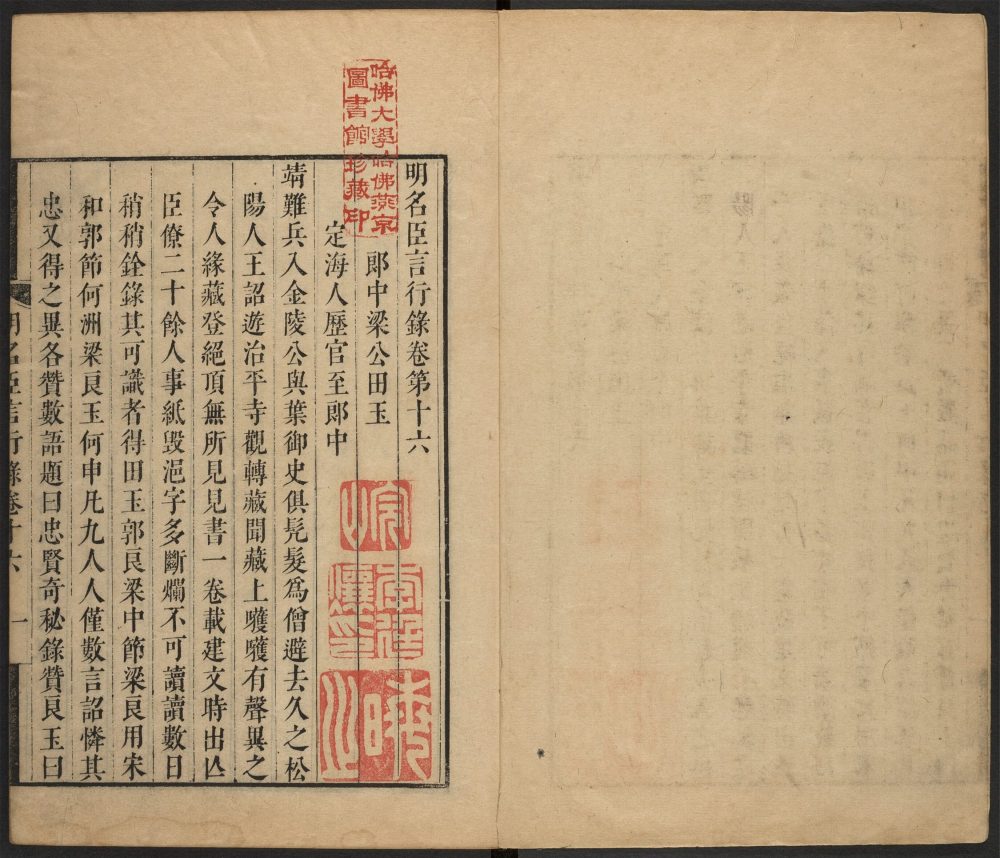 哈佛大學哈佛燕京
圖書館珍藏印
明名臣言行錄卷第十六
郎中梁公田玉
定海人歷官至郎中
靖難兵入金陵公與葉御史俱髡髮爲僧避去久之松
陽人王詔遊治平寺觀轉藏聞藏上嚄嚄有聲異之
令人緣藏登絕頂無所見見書一卷載建文時出亾
臣僚二十餘人事紙毀浥字多斷爛不可讀讀數日
稍稍銓錄其可識者得田玉郭良梁中節梁良用宋
和郭節何洲梁良玉何申凡九人人僅數言詔憐其
忠又得之異各贊數語題曰忠賢奇秘錄贊良玉曰
明名臣言行錄卷十六
一